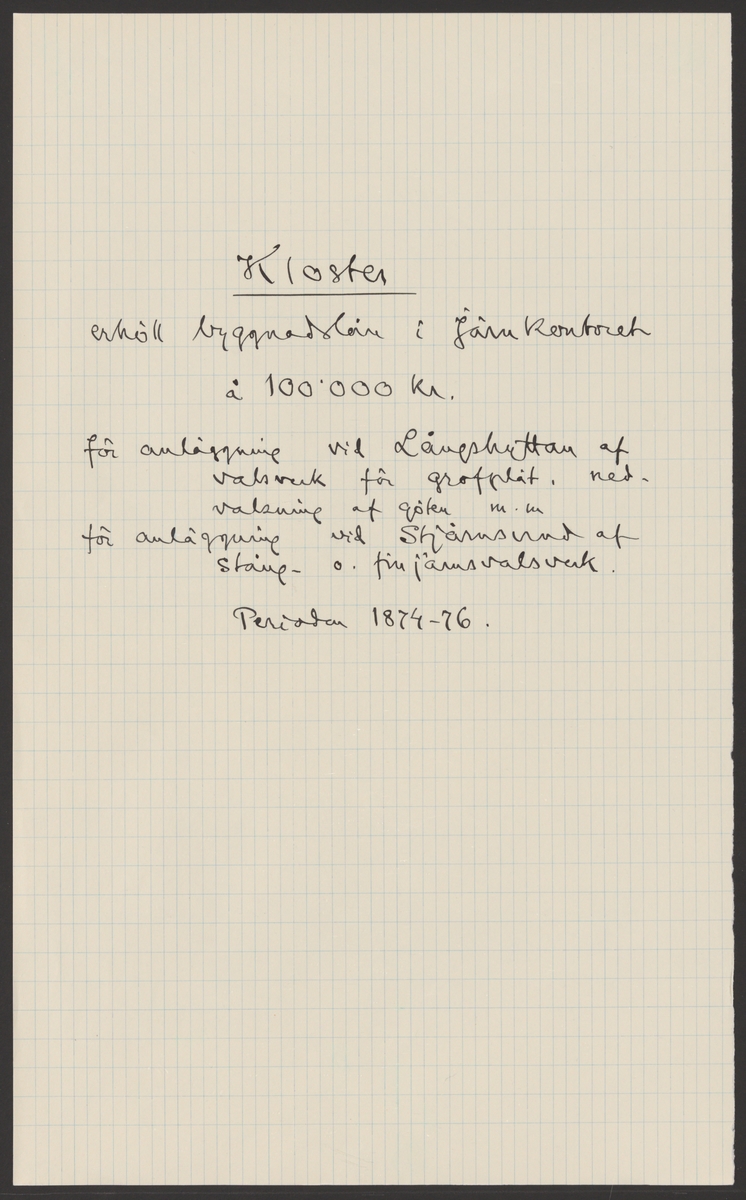 Kloster
erhöll byggnadslån i Järnkontoret
å 100'000 Kr.
för anläggning vid Långshyttan af
valsverk för grofplåt, ned-
valsning af göten m.m
för anläggning vid Stjärnsund af
stång- o. finjärnsvalsverk.
Perioden 1874-76.